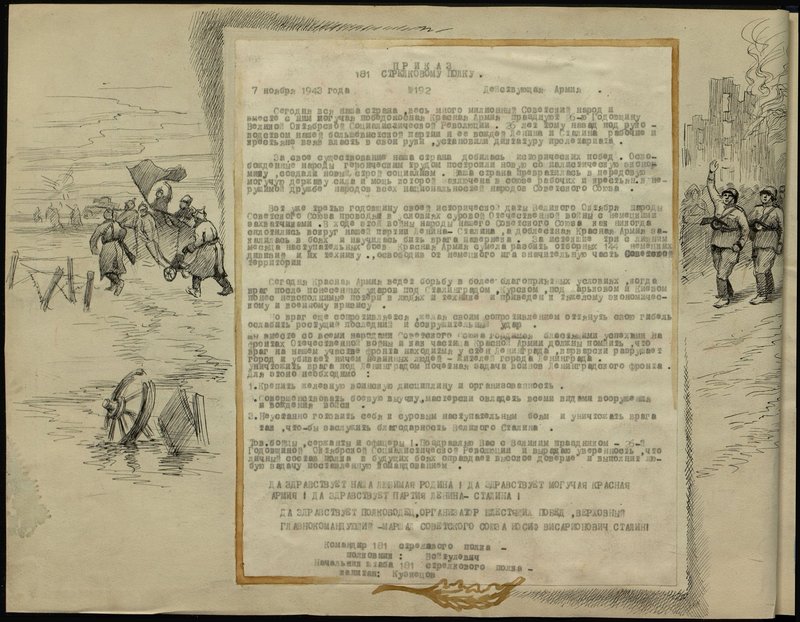 ПРИКАЗ
181 СТРЕЛКОВОМУ ПОЛКУ.
7 ноября 1943 года №192 Действующая Армия .
Сегодня вся наша страна ,весь много милионный Советский народ и
вместе с ним могучая победоносная Красная Армия празднуют 26-ю Годовщину
Великой Октябрской Социалистической Революции . 26 лет тому назад под руко -
водством нашей большевистской партии и ее вождей Ленина и Сталина рабочие и
крестьяне взяв власть в свои руки ,установили диктатуру пролетариата .
За свое существование наша страна добилась исторических побед . Осво-
божденные народы героическим трудом построили новую социалистическую эконо-
мику ,создали новый строй социализм . Наша страна превратилась в передовую
могучую державу сила и мощь которой заключена в союзе рабочих и крестьян,в не-
рушимой дружбе народов всех национальностей народов Советского Союза .
Вот уже третью годовщину своей исторической даты Великого Октября народы
Советского Союза проводят в условиях суровой Отечественной войны с немецкими
захватчиками .В ходе этой войны народы нашего Советского Союза как никогда
сплотились вокруг нашей партии Ленина- Сталина ,а доблестная Красная Армия за-
калилась в боях и научилась бить врага наверняка . За истекшие три с лишним
месяца наступательных боев Красная Армия сумела разбить отборных 144 немецких
дивизий и их технику .,освободив от немецкого ига значительную часть Советской
территории
Сегодня Красная Армия ведет борьбу в более благоприятных условиях ,когда
враг после понесенных ударов под Сталинградом ,Курском ,под Харьковом и Киевом
понес невосполнимые потери в людях и технике и приведен к тяжелому экономичес-
кому и военному кризису .
Но враг еще сопротивляется ,желая своим сопротивлением оттянуть свою гибель
ослабить растущие последний и сокрушительный удар .
мы вместе со всеми народами Советского Союза гордимся блестящими успехами на
фронтах Отечественной войны и как часть Красной Армии должны помнить ,что
враг на нашем участке фронта находится у стен Ленинграда ,варварски разрушает
город и убивает ничем невинных людей - жителей города Ленинграда .
уничтожить врага под Ленинградом почетная задача воинов Ленинградского фронта .
Для этого необходимо :
1.Крепить железную воинскую дисциплину и организованность .
.Совершенствовать боевую выучку,мастерски овладеть всеми видами вооружения
и вождения войск .
3.Неустанно готовить себя к суровым наступательным боям и уничтожать врага
так ,что-бы заслужить благодарность Великого Сталина .
Тов.бойцы ,сержанты и офицеры !.Поздравляю Вас с Великим праздником - 26-й
Годовщиной Октябрской Социалистической Революции и выражаю уверенность ,что
личный состав полка в будущих боях оправдает высокое доверие и выполнит лю-
бую задачу поставленную командованием .
ДА ЗДРАВСТВУЕТ НАША ЛЮБИМАЯ РОДИНА ! ДА ЗДРАВСТВУЕТ МОГУЧАЯ КРАСНАЯ
АРМИЯ ! ДА ЗДРАВСТВУЕТ ПАРТИЯ ЛЕНИНА- СТАЛИНА !
ДА ЗДРАВСТВУЕТ ПОЛКОВОДЕЦ,ОРГАНИЗАТОР БЛЕСТЯЩИХ ПОБЕД ,ВЕРХОВНЫЙ
ГЛАВНОКОМАНДУЮЩИЙ -МАРШАЛ СОВЕТСКОГО СОЮЗА ИОСИФ ВИСАРИОНОВИЧ СТАЛИН!
Командир 181 стрелкового полка -
полковник : Войтулевич
Начальник штаба 181 стрелкового полка -
капитан: Кузнецов